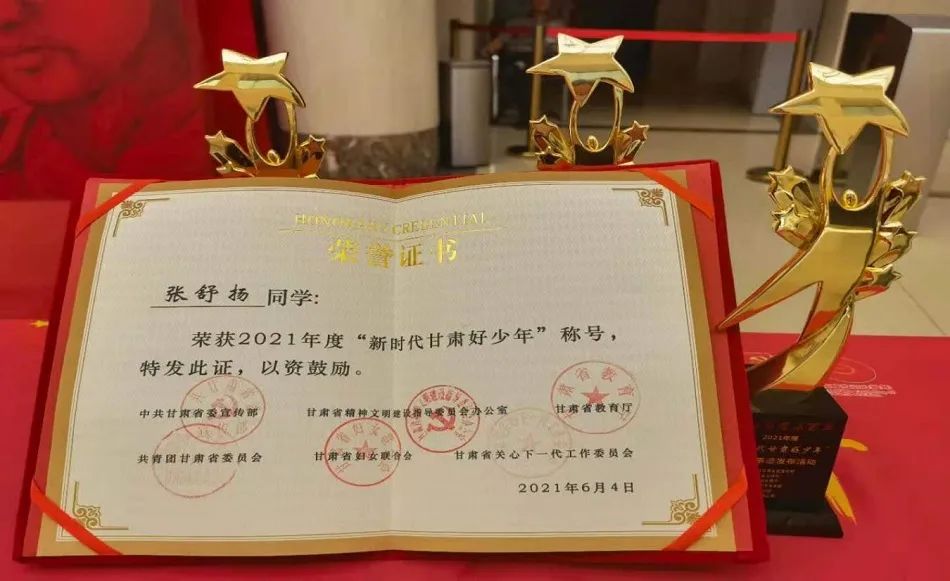 HONORARY CREDENTIAL
荣誉证书
张舒扬 同学：
荣获2021年度“新时代甘肃好少年”称号，
特发此证，以资鼓励。
中共甘肃省委宣传部 甘肃省精神文明建设指导委员会办公室 甘肃省教育厅
共青团甘肃省委员会 甘肃省妇女联合会 甘肃省关心下一代工作委员会
2021年6月4日
2021年度
代甘肃好少年”